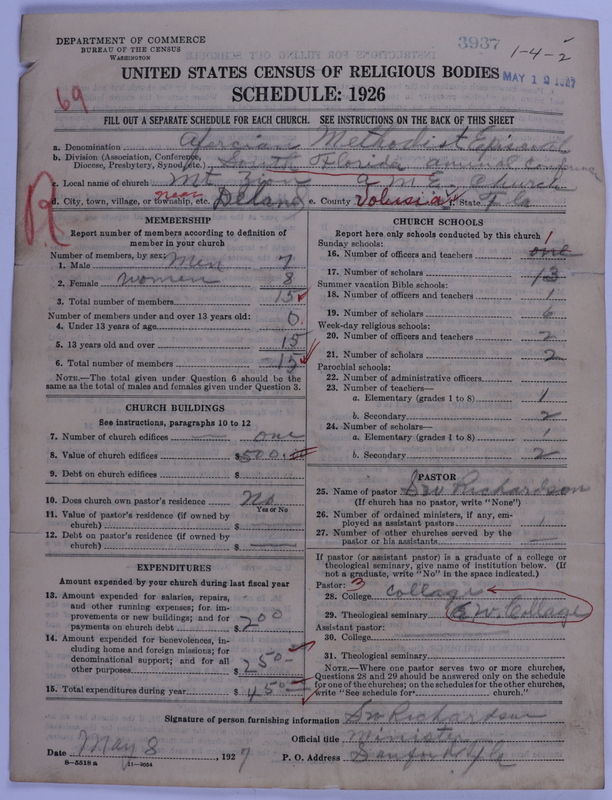 DEPARTMENT OF COMMERCE
BUREAU OF THE CENSUS
WASHINGTON
3937
1-4-2
MAY 12 1927
UNITED STATES CENSUS OF RELIGIOUS BODIES
SCHEDULE: 1926
69
FILL OUT A SEPARATE SCHEDULE FOR EACH CHURCH. SEE INSTRUCTIONS ON THE BACK OF THIS SHEET
a. Denomination Methodist Episcopal
b. Division (Association, Conference, Diocese, Presbytery, Synod, etc.) South Florida annual Conference
c. Local name of church Mt Zion A. M. E. Church
d. City, town, village, or township, etc. near Deland e. County Volusia f. State Fla
R
MEMBERSHIP
Report number of members according to definition of member in your church
Number of members, by sex:
1. Male Men 7
2. Female women 8
3. Total number of members 15
Number of members under and over 13 years old:
4. Under 13 years of age 0
5. 13 years old and over 15
6. Total number of members 15
NOTE.—The total given under Question 6 should be the same as the total of males and females given under Question 3.
CHURCH BUILDINGS
See instructions, paragraphs 10 to 12
7. Number of church edifices one
8. Value of church edifices $500.00
9. Debt on church edifices $
10. Does church own pastor's residence No
Yes or No
11. Value of pastor's residence (if owned by church) $
12. Debt on pastor's residence (if owned by church) $
EXPENDITURES
Amount expended by your church during last fiscal year
13. Amount expended for salaries, repairs, and other running expenses; for improvements or new buildings; and for payments on church debt $200
14. Amount expended for benevolences, including home and foreign missions; for denominational support; and for all other purposes $250
15. Total expenditures during year $450
CHURCH SCHOOLS
Report here only schools conducted by this church
Sunday schools:
16. Number of officers and teachers one 1
17. Number of scholars 13
Summer vacation Bible schools:
18. Number of officers and teachers 1
19. Number of scholars 6
Week-day religious schools:
20. Number of officers and teachers 2
21. Number of scholars 2
Parochial schools:
22. Number of administrative officers
23. Number of teachers—
a. Elementary (grades 1 to 8) 1
b. Secondary 2
24. Number of scholars—
a. Elementary (grades 1 to 8) 1
b. Secondary 2
PASTOR
25. Name of pastor S W Richardson
(If church has no pastor, write "None")
26. Number of ordained ministers, if any, employed as assistant pastors 1
27. Number of other churches served by the pastor or his assistants
If pastor (or assistant pastor) is a graduate of a college or theological seminary, give name of institution below. (If not a graduate, write "No" in the space indicated.)
Pastor: 3
28. College collage
29. Theological seminary E W. Collage
Assistant pastor:
30. College
31. Theological seminary
NOTE.—Where one pastor serves two or more churches, Questions 28 and 29 should be answered only on the schedule for one of the churches; on the schedules for the other churches, write "See schedule for church."
Signature of person furnishing information S W Richardson
Official title Minister
Date May 8, 1927 P. O. Address Sanford Fla
8-5518 a 11-9024